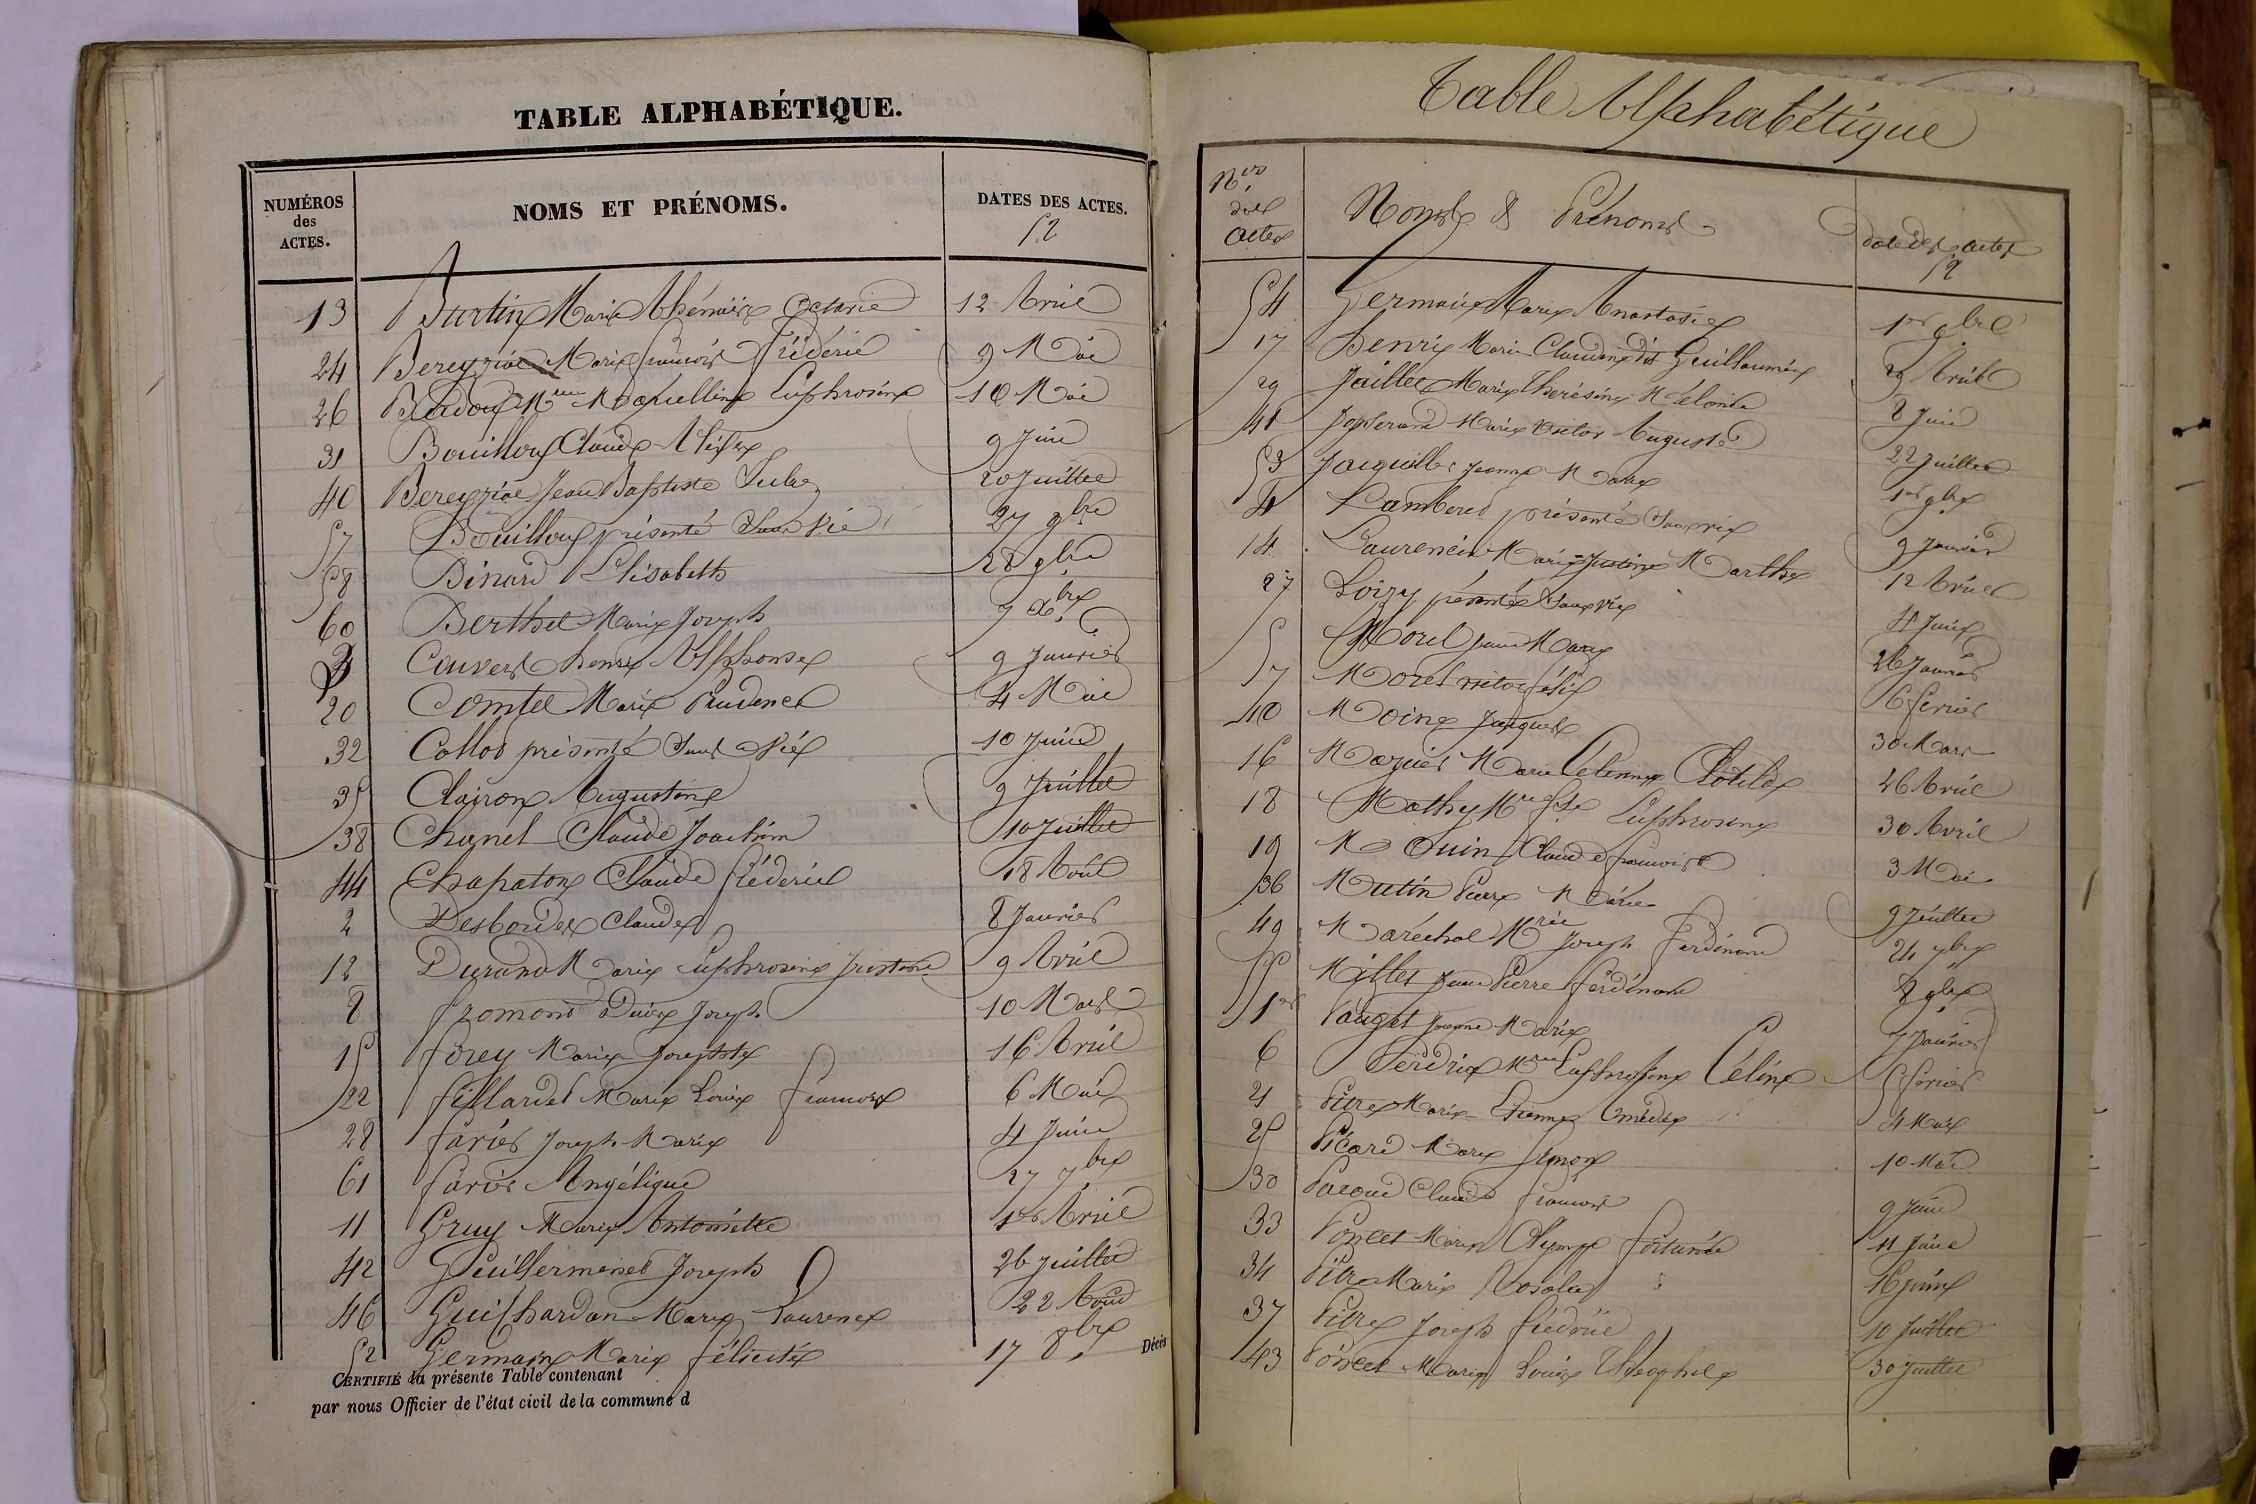 TABLE ALPHABÉTIQUE.
NUMÉROS des ACTES. NOMS ET PRÉNOMS. DATES DES ACTES.
52
13 Burtin Marie Octavie 12 Avril
24 Bereyziat Marie François Frédéric 9 Mai
26 Euphrosine 10 Mai
31 Bouilloux Claude 9 Juin
40 Bereyziat Jean Baptiste Jules 20 Juillet
57 Bouilloux présenté Sans Vie 27 9bre
58 Binard Elisabeth 28 9bre
60 Berthet Marie Joseph 7 Xbre
3 Couvert henri Alphonse 9 Janvier
20 Comtet Marie Prudence 4 Mai
32 Collod présenté Sans Vie 10 Juin
35 Clairon Augustine 9 Juillet
38 Chanel Claude Joachim 10 Juillet
44 Chapaton Claude Fréderic 18 Août
2 Desbordes Claude 8 Janvier
12 Durand Marie Euphrosine Justine 9 Avril
8 fromond Joseph 10 Mars
15 forey Marie Josephte 16 Avril
22 fillardet Marie Louise françoise 6 Mai
28 farier Joseph Marie 4 Juin
61 farier Angélique 27
11 Gruy Marie Antoinette 1er Avril
42 Guillermenet Joseph 26 Juillet
46 Guichardan Marie Laurence 22 Août
52 Germain Marie félicité 17 8bre
Décès
CERTIFIÉ la présente Table contenant
par nous Officier de l'état civil de la commune d
Table Alphabétique
Nos des Actes Noms & Prénoms date des actes
52
54 Germain Marie Anastasie 1er 9bre
17 henri Marie Claudine dit Guillaumine 29 Avril
29 Jaillet Marie Therésine Mélonie 8 Juin
41 Marie Victor Auguste 22 Juillet
53 Jeanne Marie 1er 9bre
4 Lambered présenté Sans vie 9 Janvier
14 Laurencin Marie Justine Marthe 12 Avril
27 Loizy présenté Sans vie 4 Juin
5 Morel Jeanne Marie 26 Janvier
7 Morel victor félix 6 fevrier
10 Moine Jacques 30 Mars
16 Mazuir Marie Celennie Clotilde 26 Avril
18 Mathy Euphrosine 30 Avril
19 Claude françoise 3 Mai
36 Mutin Pierre Marie 9 Juillet
49 Maréchal Mrie Joseph Ferdinand 24 7bre
55 Millet Jean Pierre ferdinand 8 9bre
1er Pauget Jeanne Marie 7 Janvier
6 Perdrix Mrie Euphrosine Céline 5 fevrier
21 Pitre Marie Etienne Amédée 4 Mai
25 Picard Marie Simon 10 Mai
30 Pacoud Claude françois 9 Juin
33 Poncet Marie Olympe fortunée 11 Juin
34 Pitre Marie Rosalie 16 juin
37 Pitre Joseph fréderic 10 Juillet
43 Poncet Marie Louise Théophile 30 Juillet